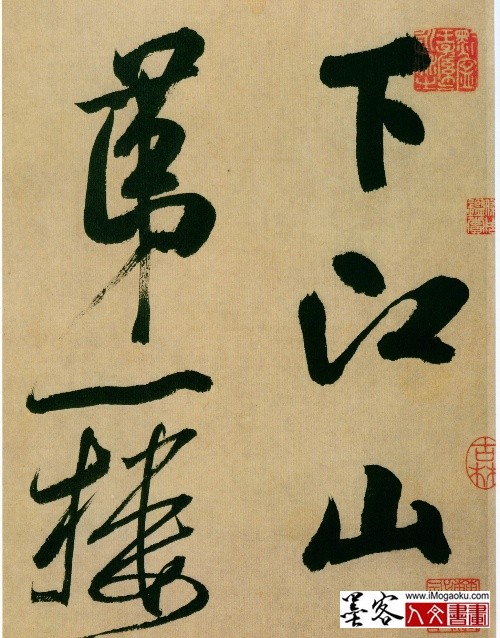 下江山
第一樓
www.iMogaoku.com
墨客人文書畫